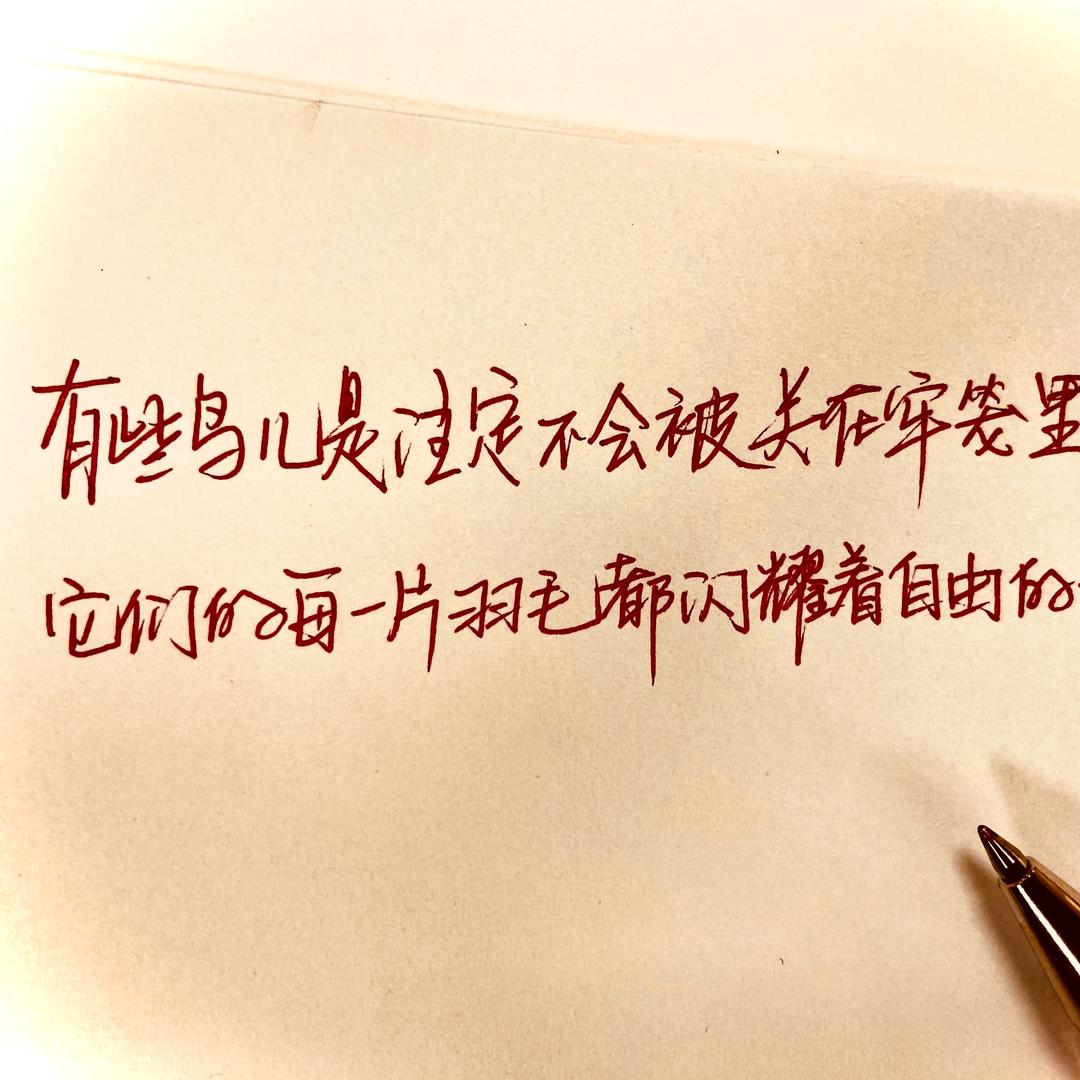 有些鸟儿是注定不会被关在牢笼里
它们的每一片羽毛都闪耀着自由的